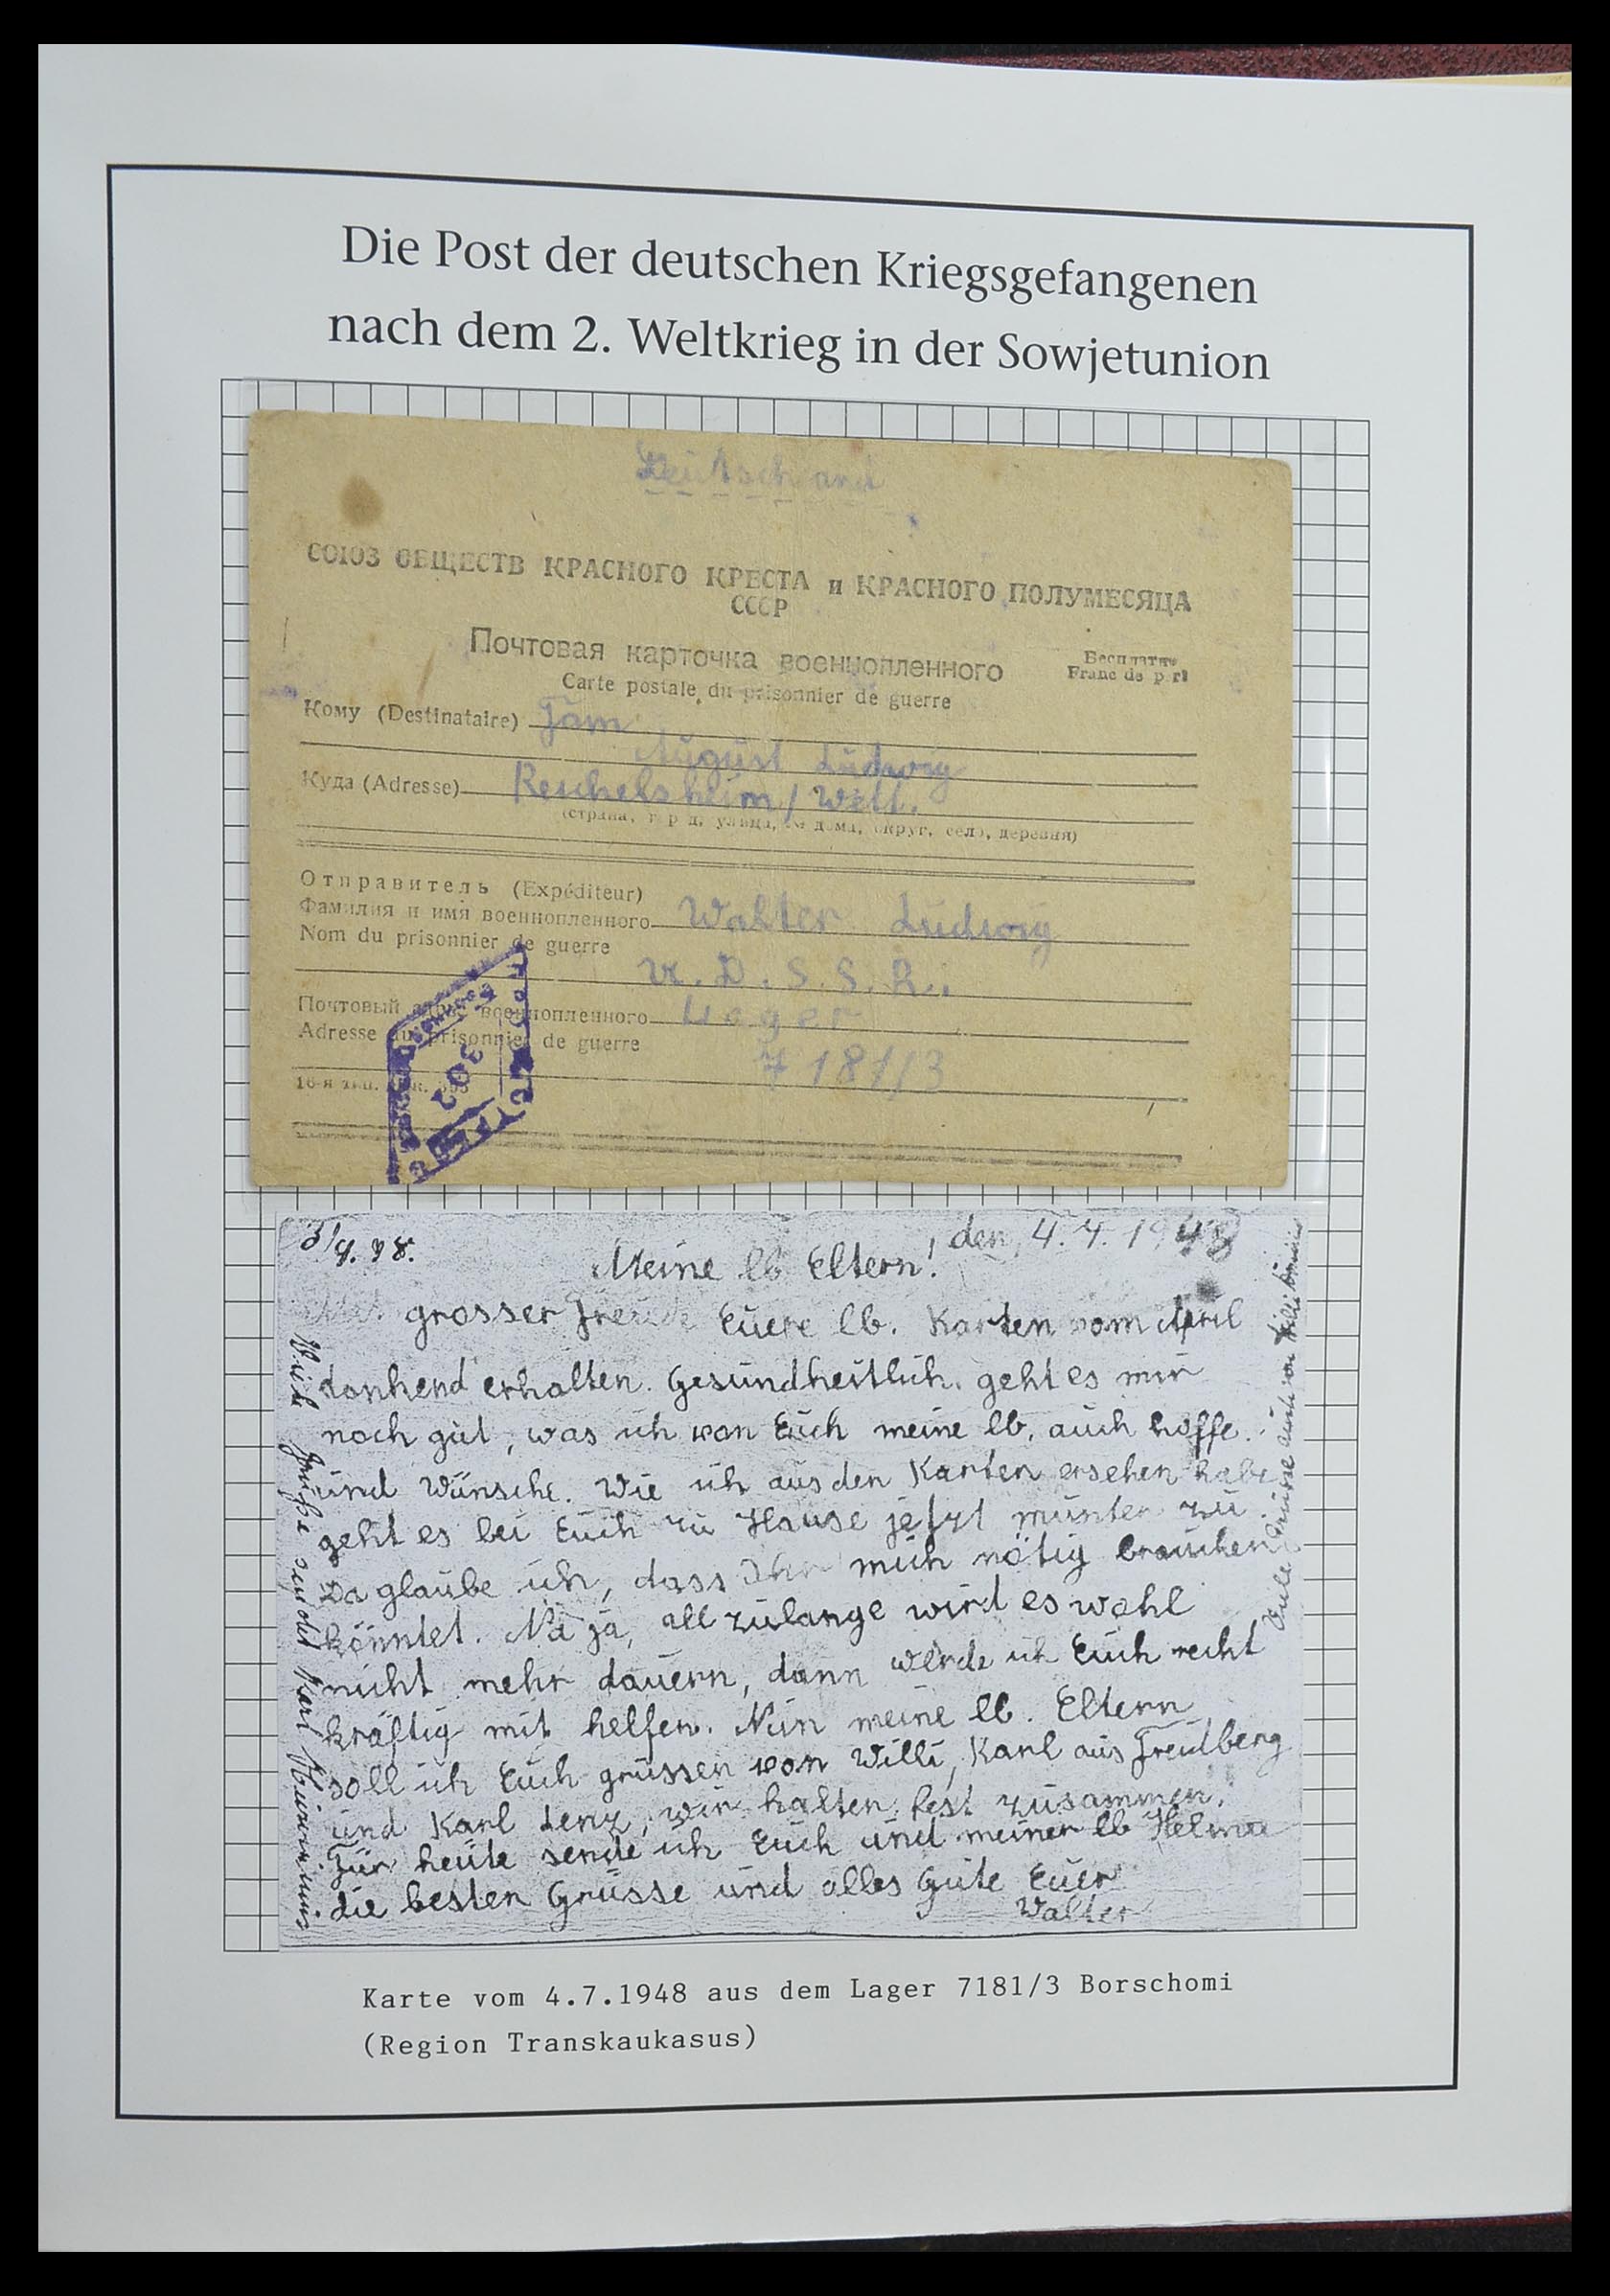 Die Post der deutschen Kriegsgefangenen
nach dem 2. Weltkrieg in der Sowjetunion
СОЮЗ ОБЩЕСТВ КРАСНОГО КРЕСТА и КРАСНОГО ПОЛУМЕСЯЦА
СССР
Почтовая карточка военнопленного
Бесплатно
Franc de port
Carte postale du prisonnier de guerre
Кому (Destinataire)
August Ludwig
Куда (Adresse) Reichelsheim / Wett.
(страна, город, улица, № дома, округ, село, деревня)
Отправитель (Expéditeur)
Фамилия и имя военнопленного Walter Ludwig
Nom du prisonnier de guerre
U.D.S.S.R.
Почтовый адрес военнопленного Lager
Adresse du prisonnier de guerre
7181/3
302
den, 4.7.1948
Meine lb Eltern!
grosser Freude Euere lb. Karten vom April
dankend erhalten. Gesundheitlich geht es mir
noch gut, was ich von Euch meine lb. auch hoffe.
und Wünsche. Wie ich aus den Karten ersehen habe
geht es bei Euch zu Hause jetzt munter zu.
Da glaube ich, dass Ihr mich nötig brauchen
könntet. Na ja, all zulange wird es wohl
nicht mehr dauern, dann werde ich Euch recht
kräftig mit helfen. Nun meine lb. Eltern
soll ich Euch grüssen von Willi, Karl aus Freidberg
und Karl Lenz, wir halten fest zusammen.
Für heute sende ich Euch und meiner lb Helma
die besten Grüsse und alles Gute Euer
Walter
Viele Grüße sendet Karl
Viele Grüsse auch von Willi
Karte vom 4.7.1948 aus dem Lager 7181/3 Borschomi
(Region Transkaukasus)